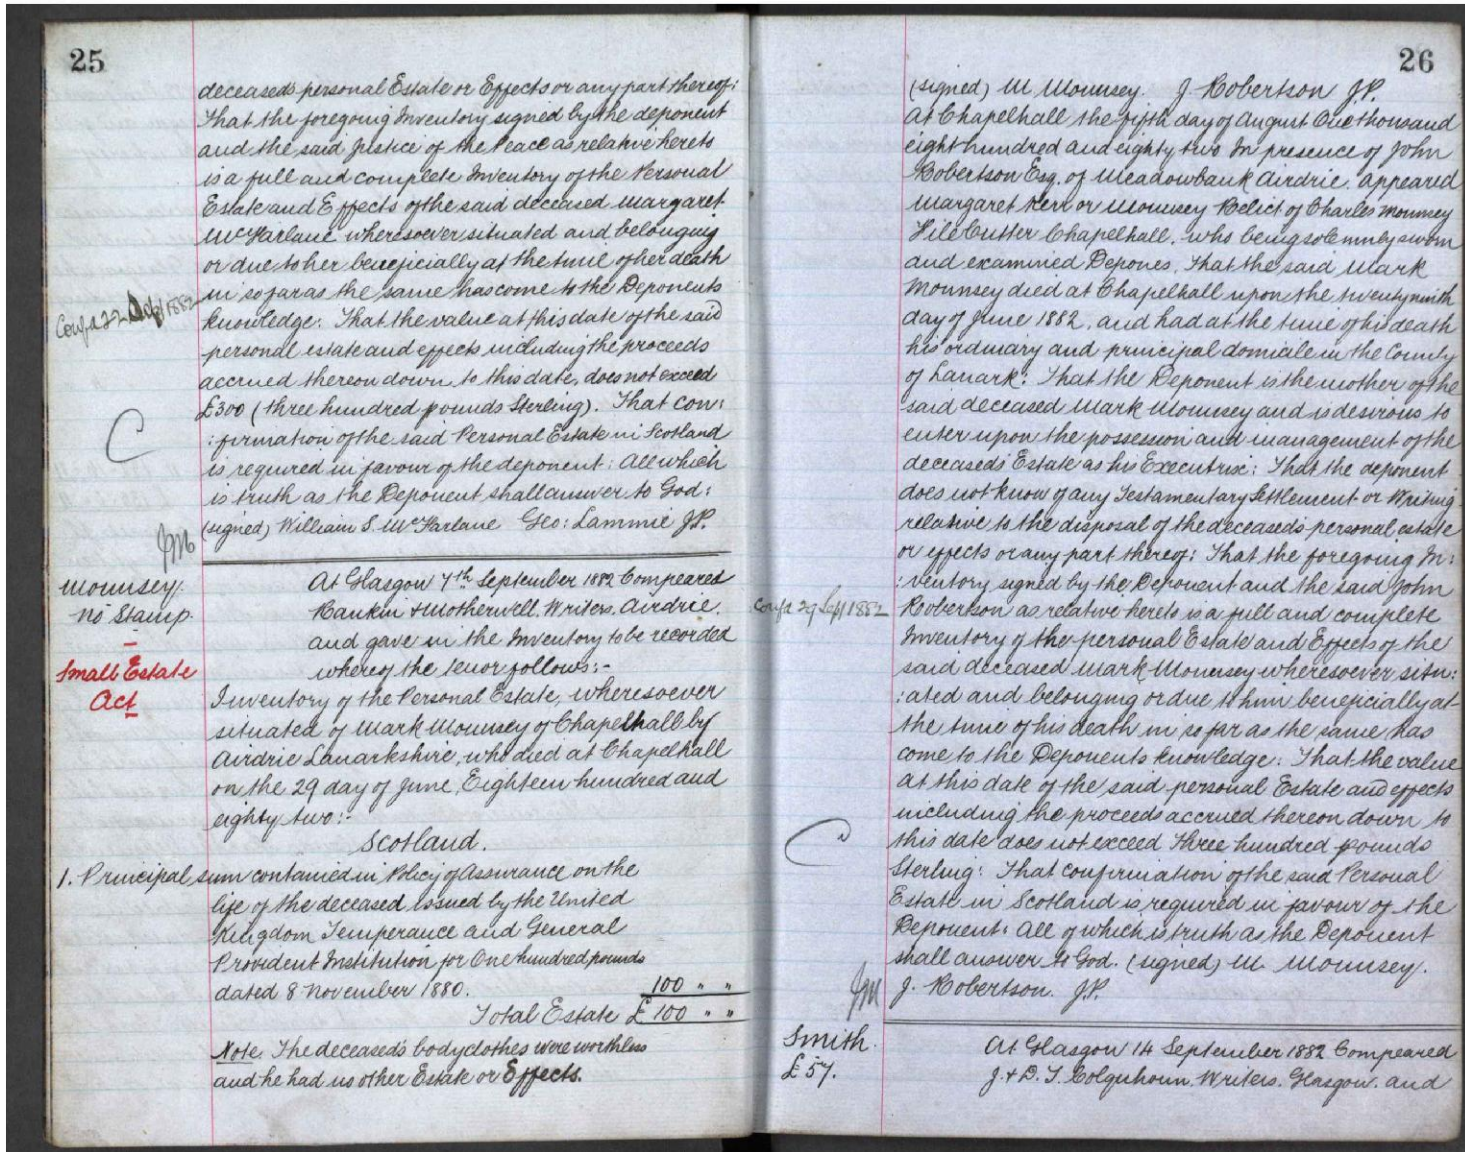 25
deceased's personal Estate or Effects or any part thereof:
That the foregoing Inventory signed by the deponent
and the said Justice of the Peace as relative hereto
is a full and complete Inventory of the Personal
Estate and Effects of the said deceased Margaret
McFarlane wheresoever situated and belonging
or due to her beneficially at the time of her death
in so far as the same has come to the Deponents
Conf d 22 Sept 1882
knowledge: That the value at this date of the said
personal estate and effects including the proceeds
accrued thereon down to this date, does not exceed
£300 (three hundred pounds Sterling). That con:
C
:firmation of the said Personal Estate in Scotland
is required in favour of the deponent: All which
is truth as the Deponent shall answer to God:
(signed) William S. McFarlane Geo: Lammie J.P.
JM
Mounsey.
No Stamp.
Small Estate
Act
At Glasgow 7th September 1882 Compeared
Rankin & Motherwell. Writers. Airdrie.
and gave in the Inventory to be recorded
whereof the tenor follows:-
Inventory of the Personal Estate, wheresoever
situated of Mark Mounsey of Chapelhall by
Airdrie Lanarkshire, who died at Chapelhall
on the 29 day of June, Eighteen hundred and
eighty two:-
Scotland.
1. Principal sum contained in Policy of Assurance on the
life of the deceased issued by the United
Kingdom Temperance and General
Provident Institution for One hundred pounds
dated 8 November 1880. 100 " "
Total Estate £ 100 " "
Note. The deceased's bodyclothes were worthless
and he had no other Estate or Effects.
26
(signed) M Mounsey. J. Robertson J.P.
At Chapelhall the fifth day of August One thousand
eight hundred and eighty two In presence of John
Robertson Esq. of Meadowbank Airdrie. appeared
Margaret Kerr or Mounsey Relict of Charles Mounsey
File Cutter Chapelhall, who being solemnly sworn
and examined Depones, That the said Mark
Mounsey died at Chapelhall upon the twenty ninth
day of June 1882, and had at the time of his death
his ordinary and principal domicile in the County
of Lanark: That the Deponent is the mother of the
said deceased Mark Mounsey and is desirous to
enter upon the possession and management of the
deceased's Estate as his Executrix: That the deponent
does not know of any Testamentary Settlement or Writing
relative to the disposal of the deceased's personal estate
or effects or any part thereof: That the foregoing In:
:ventory signed by the Deponent and the said John
Conf d 29 Sept 1882
Robertson as relative hereto is a full and complete
Inventory of the personal Estate and Effects of the
said deceased Mark Mounsey wheresoever situ:
:ated and belonging or due to him beneficially at
the time of his death in so far as the same has
come to the Deponents knowledge: That the value
at this date of the said personal Estate and effects
including the proceeds accrued thereon down to
C
this date does not exceed Three hundred pounds
Sterling: That confirmation of the said Personal
Estate in Scotland is required in favour of the
Deponent: All of which is truth as the Deponent
shall answer to God. (signed) M Mounsey.
JM
J. Robertson. J.P.
Smith.
£57.
At Glasgow 14 September 1882 Compeared
J. & D. T. Colquhoun. Writers. Glasgow. and